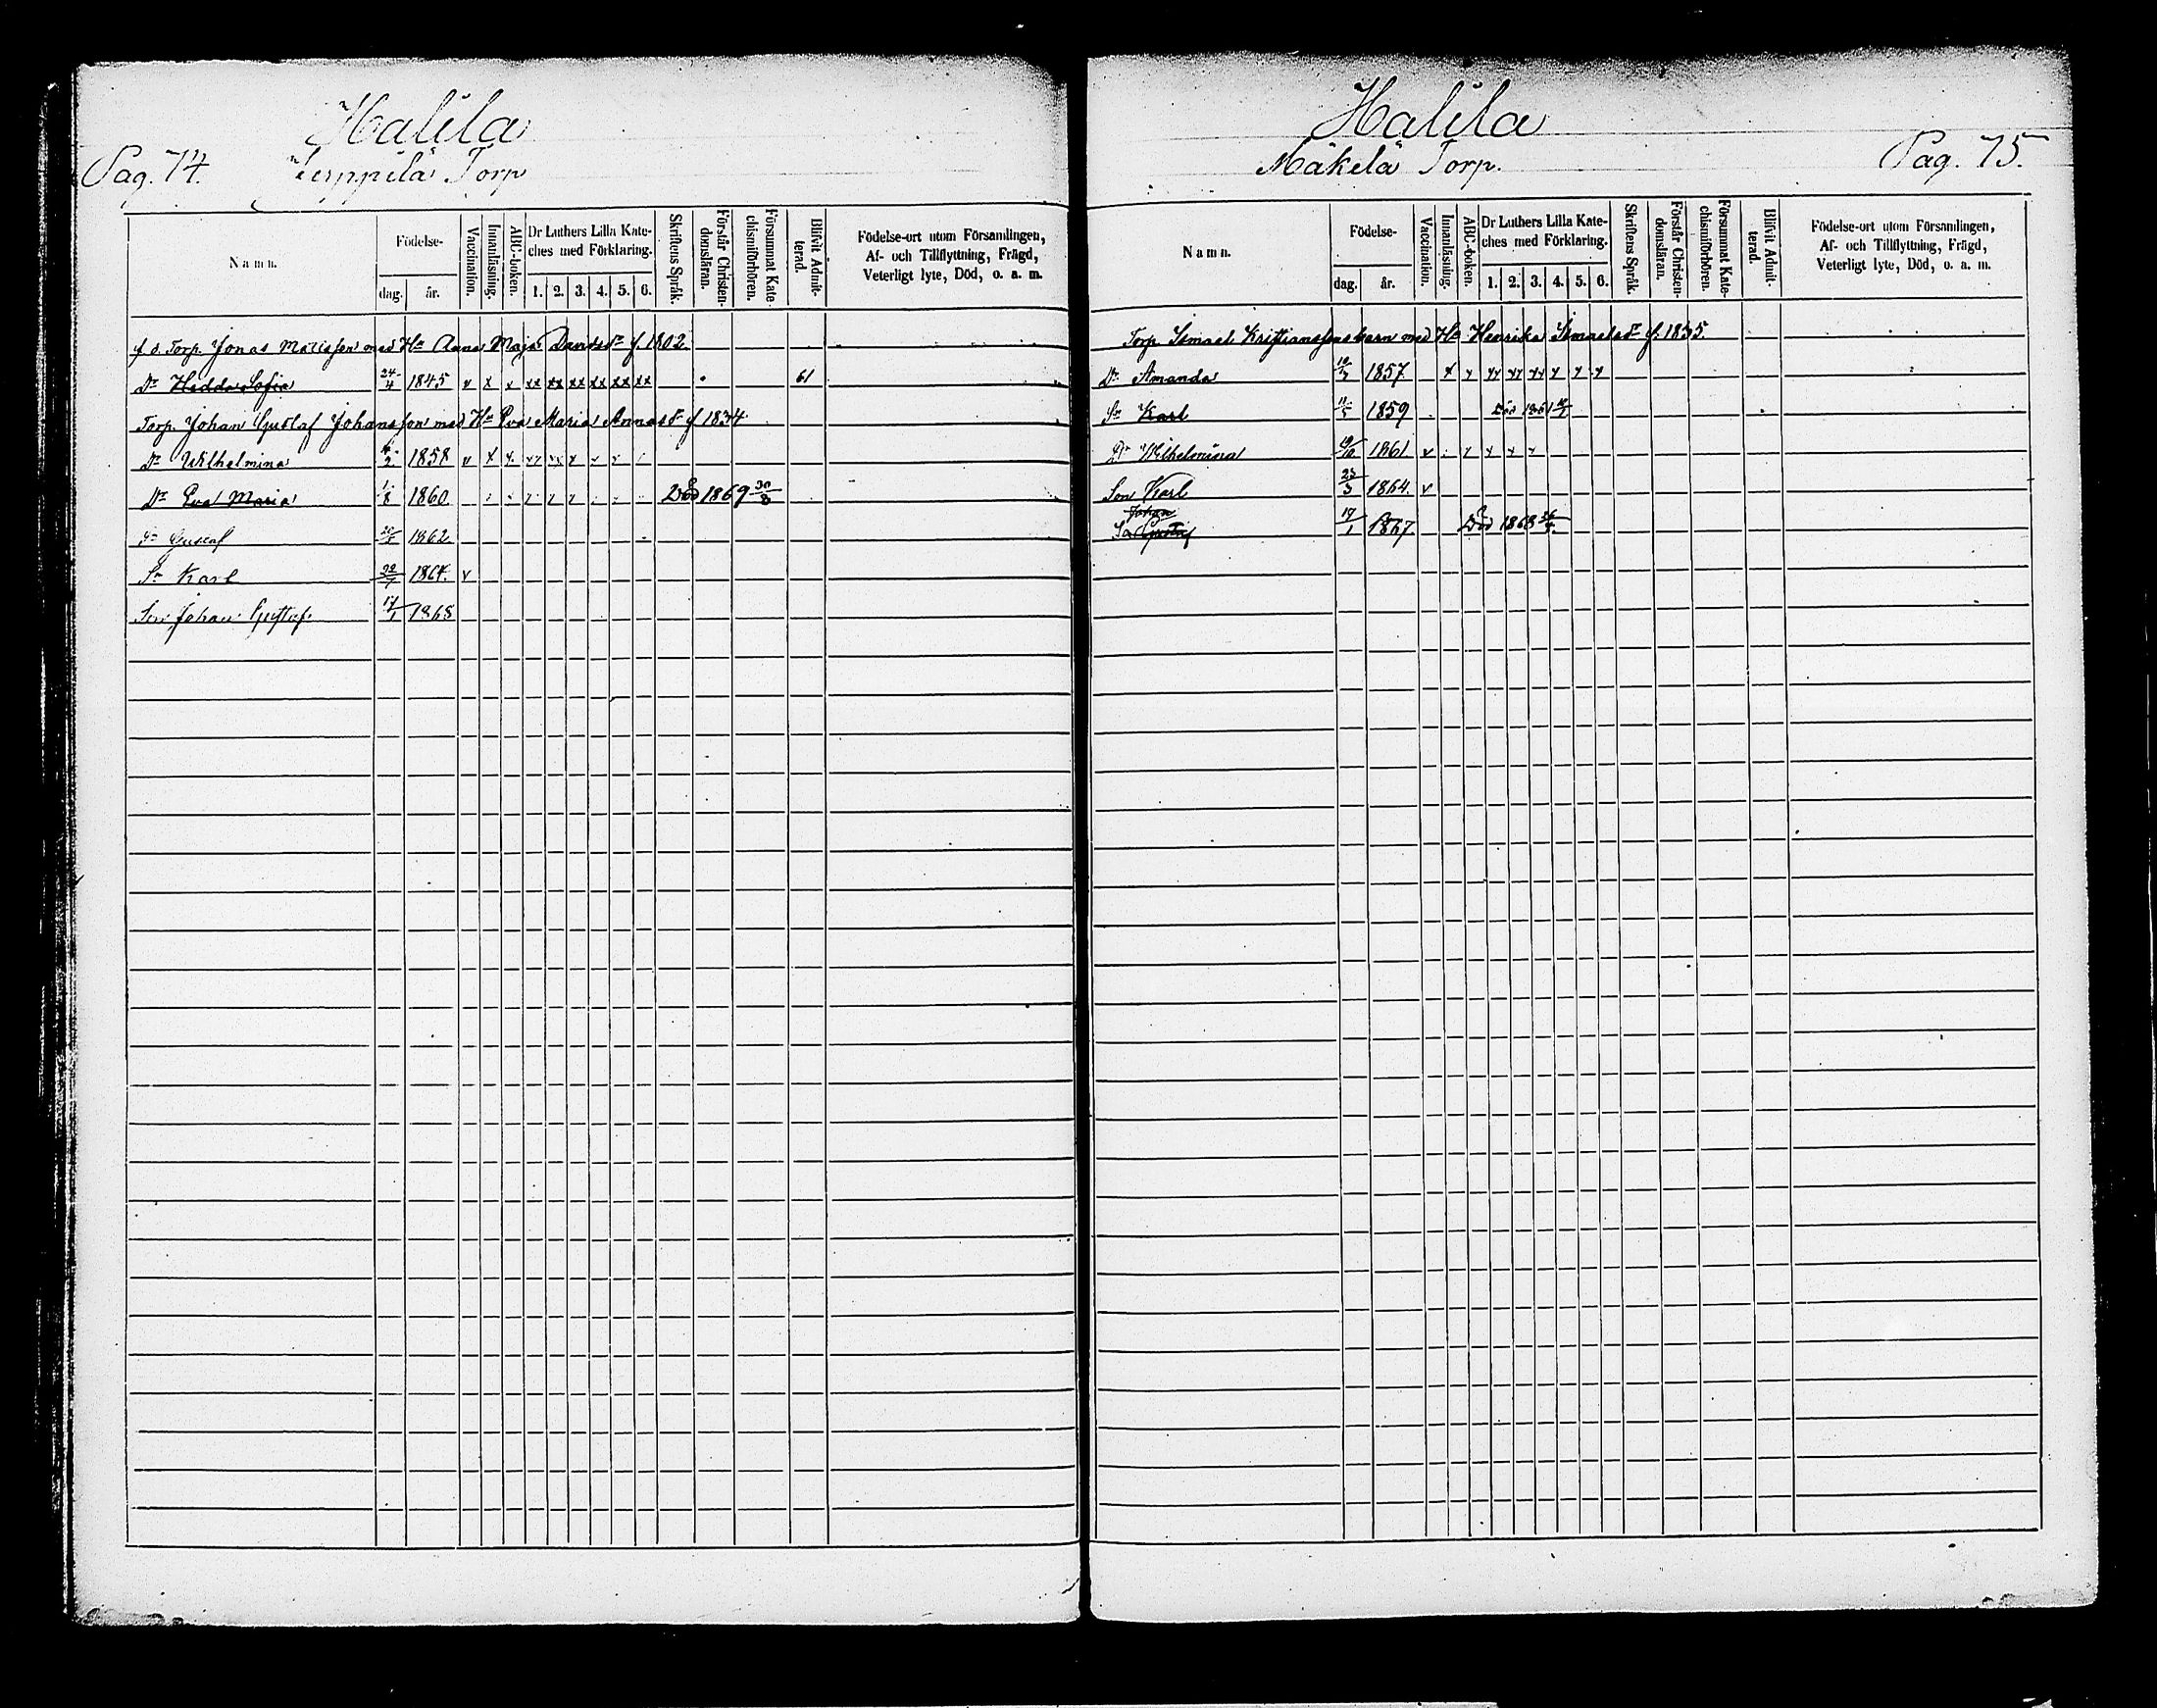 Halila
Pag. 74. Torp
Namn. Födelse- dag. år. Vaccination. Innanläsning. ABC-boken. Dr Luthers Lilla Kate-ches med Förklaring. 1. 2. 3. 4. 5. 6. Skriftens Språk. Förstår Christen-domsläran. Försummat Kate-chismiförhören. Blifvit Admit-terad. Födelse-ort utom Församlingen, Af- och Tillflyttning, Frägd, Veterligt lyte, Död, o. a. m.
f. d. Torp. Jonas Matisson med Hu Anna Maja Davidsdr f 1802
Dr Hedda Sofia 24/4 1845 v x x xx xx xx xx xx xx 61
Torp. Johan Gustaf Johansson med Hu Eva Maria Annasdr f 1834
Dr Wilhelmina 1858 v x x
Dr Eva Maria 1/8 1860 Död 1869 30/3
Sn Gustaf 1862
Sn Karl 1864. v
Son Johan Gustaf. 17/1 1868
Halila
Mäkelä Torp. Pag. 75.
Namn. Födelse- dag. år. Vaccination. Innanläsning. ABC-boken. Dr Luthers Lilla Kate-ches med Förklaring. 1. 2. 3. 4. 5. 6. Skriftens Språk. Förstår Christen-domsläran. Försummat Kate-chismiförhören. Blifvit Admit-terad. Födelse-ort utom Församlingen, Af- och Tillflyttning, Frägd, Veterligt lyte, Död, o. a. m.
Torp Ismael Kristianssons barn med Hu Henrika Ismaelsdr f. 1835.
Dr Amanda 1857
Sn Karl 1859 Död
Dr Wilhelmina 19/10 1861 v
Son Karl 23/3 1864. v
Johan
Sn Gustaf 19/1 1867. Död 1868